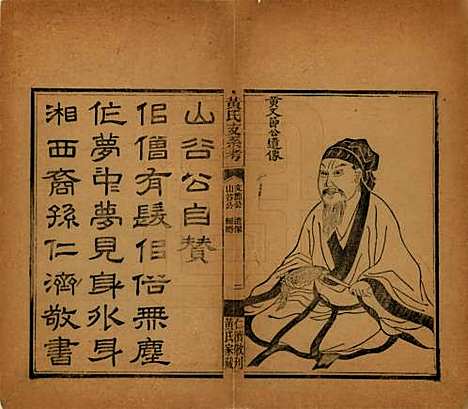 黃文節公遺像
黃氏支系考
文節公 遺像
山谷公
二
仁濟敬刊
黃氏家藏
山谷公自贊
佀僧有髮佀俗無塵
作夢中夢見身外身
湘西裔孫仁濟敬書